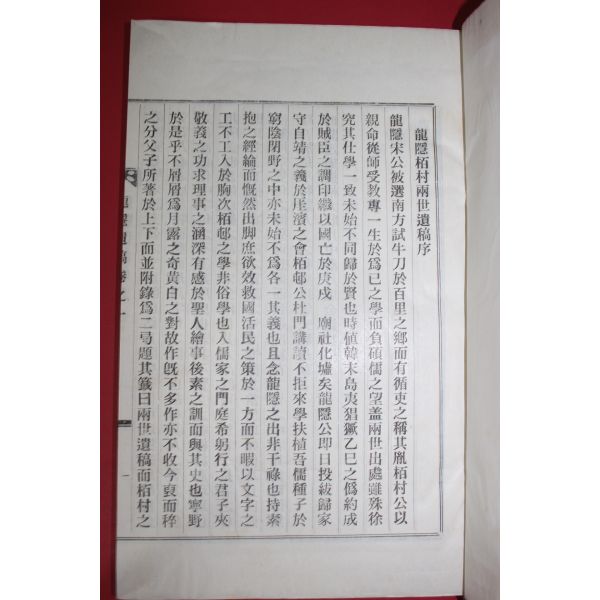 龍隱栢村兩世遺稿序
龍隱宋公被選南方試牛刀於百里之鄕而有循吏之稱其胤栢村公以
親命從師受敎專一生於爲已之學而負碩儒之望盖兩世出處雖殊徐
究其仕學一致未始不同歸於賢也時値韓末島夷猖獗乙巳之僞約成
於賊臣之調印繼以國亡於庚戌 廟社化墟矣龍隱公卽日投紱歸家
守自靖之義於厓濱之會栢邨公杜門講讀不拒來學扶植吾儒種子於
窮陰閉野之中亦未始不爲各一其義也且念龍隱之出非干祿也持素
抱之經綸而慨然出脚庶欲效救國活民之策於一方而不暇以文字之
工不工入於胸次栢邨之學非俗學也入儒家之門庭希躬行之君子夾
敬義之功求理事之涵深有感於聖人繪事後素之訓而與其史也寧野
於是乎不屑屑爲月露之奇黃白之對故作旣不多作亦不收今裒而稡
之分父子所著於上下而並附錄爲二弓題其籤曰兩世遺稿而栢村之
龍隱遺稿卷之一
一